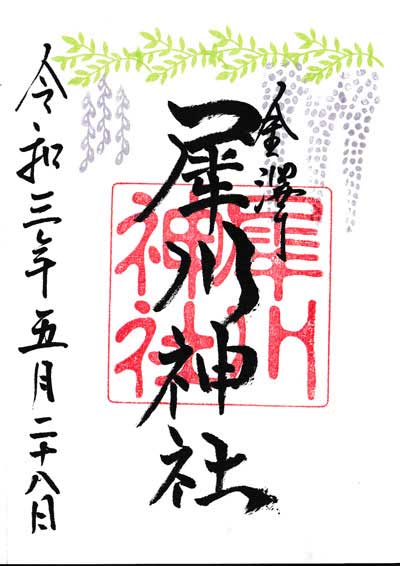 金澤
犀川神社
犀川
神社
令和三年五月二十八日